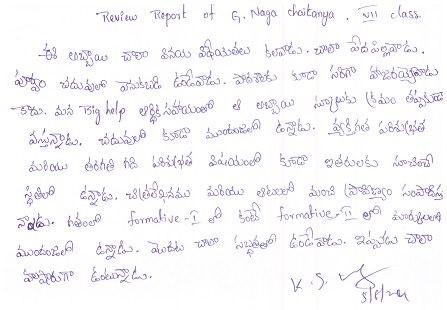 Review Report of G. Naga chaitanya. VII class
ఈ అబ్బాయి చాలా వినయ విధేయతలు కలవాడు. చాలా పేద పిల్లవాడు.
పూర్వం చదువులో వెనుకబడి ఉండేవాడు. పాఠశాలకు కూడా సరిగా హాజరయ్యేవాడు
కాదు. మన Big help ఆర్థిక సహాయంతో ఆ అబ్బాయి స్కూలుకు క్రమం తప్పకుండా
వస్తున్నాడు. చదువులో కూడా ముందంజలో ఉన్నాడు. వ్యక్తిగత పరిశుభ్రత
మరియు తరగతి గది పరిశుభ్రత విషయంలో కూడా ఇతరులకు సూచించే
స్థితిలో ఉన్నాడు. చిత్రలేఖనము మరియు ఆటలలో మంచి ప్రావీణ్యం సంపాదిస్తు
న్నాడు. గతంలో formative-I లో కంటే formative-II లో మార్కులలో
ముందంజలో ఉన్నాడు. మొదట చాలా నిశ్శబ్దంగా ఉండేవాడు. ఇప్పుడు చాలా
హుషారుగా ఉంటున్నాడు.
K. S.